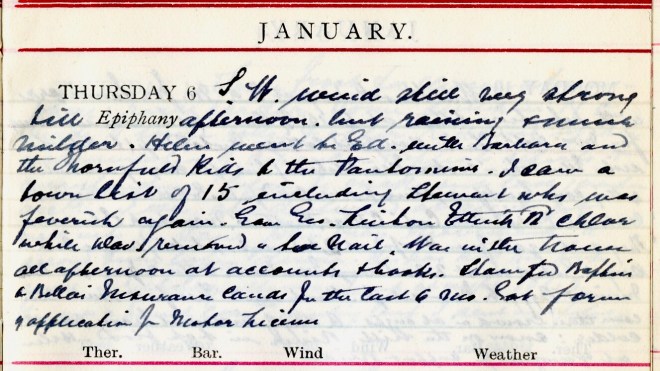 JANUARY.
THURSDAY 6 S. W. wind still very strong
till Epiphany afternoon. but raining & much
milder. Helen went to Ed. with Barbara and
the Kids to the Pantomime. I saw a
town list of 15 including Stewart who was
feverish again. Gave Gas. Ettrick Rd
while was removed a Nail. Was in the house
all afternoon at accounts & books. Stamped
& Bella's Insurance Cards for the last 6 mos. Got form
of application for Motor License
Ther. Bar. Wind Weather